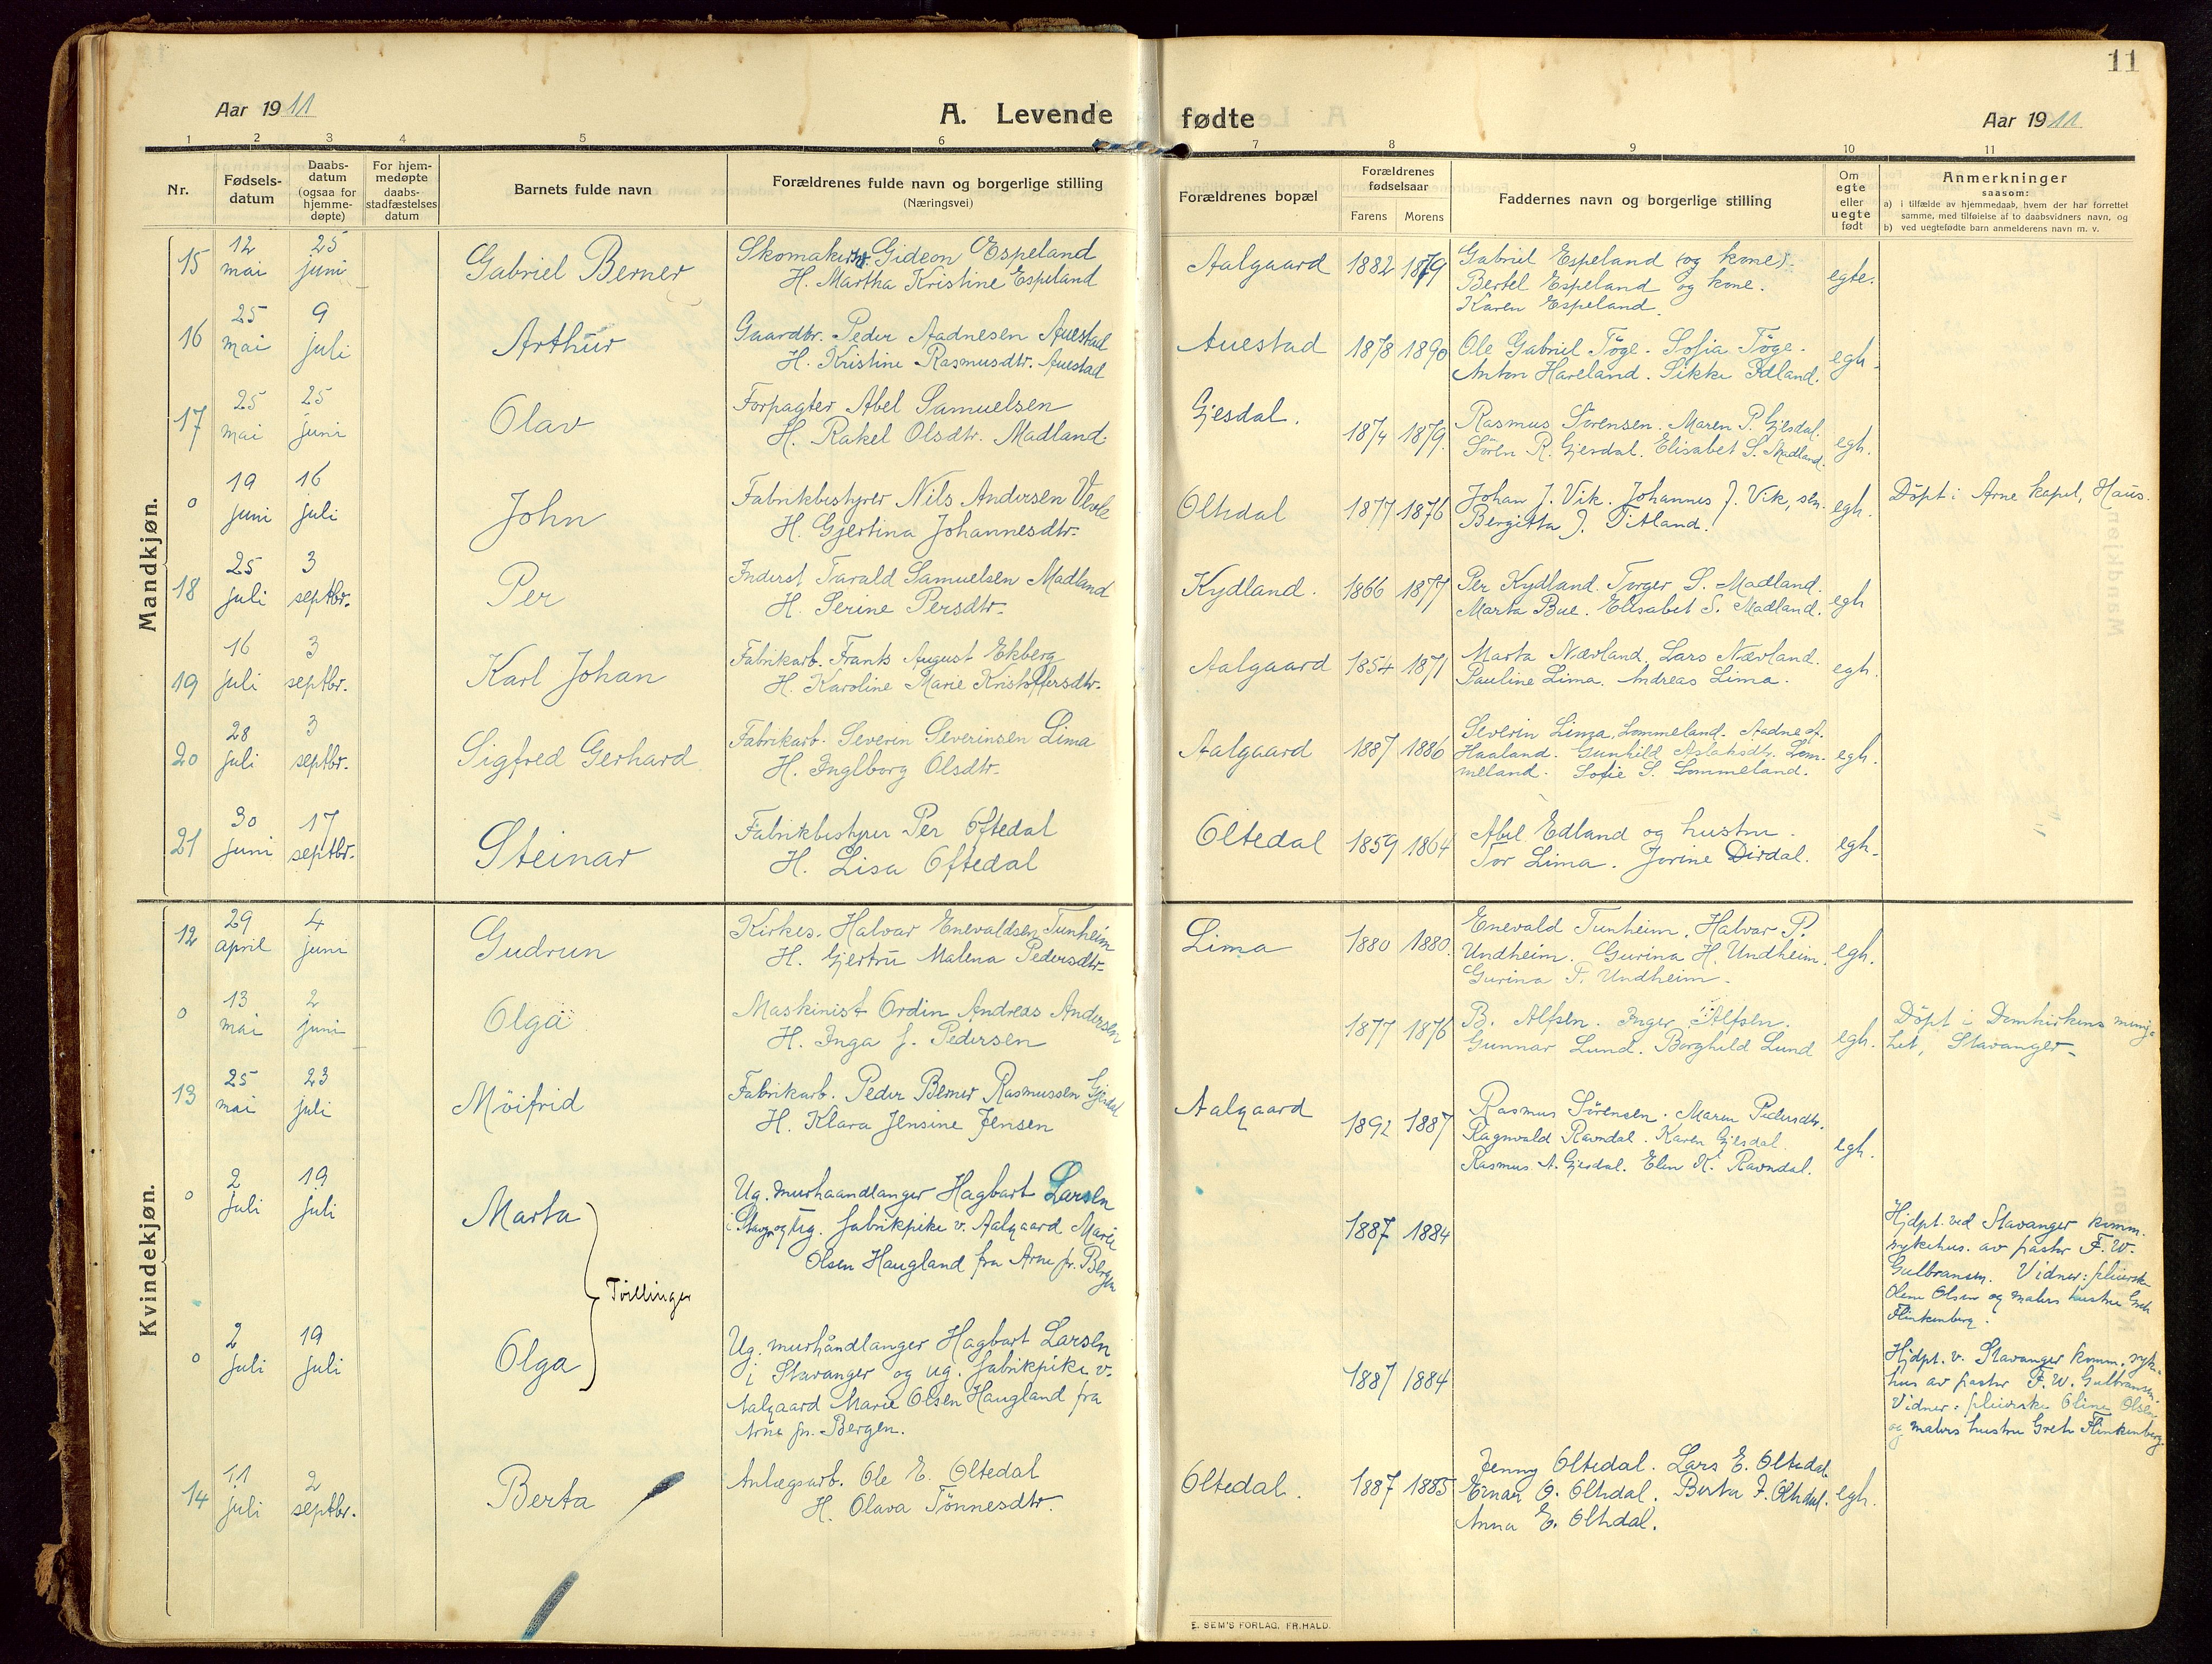 11
Aar 1911
A. Levende fødte
Aar 1911
1 2 3 4 5 6 7 8 9 10 11
Nr.
Fødsels-
datum
Daabs-
datum
(ogsaa for
hjemme-
døpte)
For hjem-
medøpte
daabs-
stadfæstelses
datum
Barnets fulde navn
Forældrenes fulde navn og borgerlige stilling
(Næringsvei)
Forældrenes bopæl
Forældrenes
fødselsaar
Farens Morens
Faddernes navn og borgerlige stilling
Om
egte
eller
uegte
født
Anmerkninger
saasom:
a) i tilfælde av hjemmedaab, hvem der har forrettet
samme, med tilføielse af to daabsvidners navn, og
b) ved uegtefødte barn anmelderens navn m. v.
Mandkjøn.
15
12
mai
25
juni
Gabriel Berner
Skomaker Gideon Espeland
H. Martha Kristine Espeland
Aalgaard
1882 1879
Gabriel Espeland (og kone).
Bertel Espeland og kone.
Karen Espeland.
egte.
16
25
mai
9
juli
Arthur
Gaardbr. Peder Aadnesen Auestad
H. Kristine Rasmusdtr. Auestad
Auestad
1878 1890
Ole Gabriel Töge. Sofia Töge.
Anton Hareland. Sikke Edland.
egh.
17
25
mai
25
juni
Olav
Forpagter Abel Samuelsen
H. Rakel Olsdtr. Madland.
Gjesdal.
1874 1879.
Rasmus Sörensen. Maren P. Gjesdal.
Sören R. Gjesdal. Elisabet S. Madland.
egh.
o
19
juni
16
juli
John
Fabrikbestyrer Nils Andersen
H. Gjertina Johannesdtr.
Oltedal
1877 1876
Johan J. Vik. Johannes J. Vik, sen.
Bergitta J. Titland.
egh.
Döpt i Arne kapel, Haus.
18
25
juli
3
septbr.
Per
Inderst Tarald Samuelsen Madland
H. Serine Persdtr.
Kydland.
1866 1877
Per Kydland. Torger S. Madland.
Marta Bue. Elisabet S. Madland.
egh
19
16
juli
3
septbr.
Karl Johan
Fabrikarb. Frants August Ekberg
H. Karoline Marie Kristoffersdtr.
Aalgaard
1854 1871
Marta Nævland. Lars Nævland.
Pauline Lima. Andreas Lima.
egh.
20
28
juli
3
septbr.
Sigfred Gerhard
Fabrikarb. Severin Severinsen Lima
H. Inglborg Olsdtr.
Aalgaard
1887 1886
Severin Lima, Lommeland. Aadne
Haaland. Gunhild Aslaksdtr. Lom-
meland. Sofie S. Lommeland.
egh.
21
30
juni
17
septbr.
Steinar
Fabrikbestyrer Per Oftedal
H. Lisa Oftedal
Oltedal
1859 1864
Abel Edland og hustru.
Tor Lima. Jorine Dirdal.
egh.
Kvindekjøn.
12
29
april
4
juni
Gudrun
Kirkes. Halvar Enevaldsen Tunheim
H. Gjertru Malena Pedersdtr.
Lima
1880 1880.
Enevald Tunheim. Halvar P.
Undheim. Gurina H. Undheim.
Gurina P. Undheim.
egh.
o
13
mai
2
juni
Olga
Maskinist Ordin Andreas Andersen
H. Inga J. Pedersen
1877 1876
B. Alfsen. Inger Alfsen.
Gunnar Lund. Borghild Lund
egh.
Döpt i Domkirkens menig-
het, Stavanger.
13
25
mai
23
juli
Möifrid
Fabrikarb. Peder Berner Rasmussen Gjesdal
H. Klara Jensine Jensen
Aalgaard
1892 1887
Rasmus Sörensen. Maren Pedersdtr.
Ragnvald Ravndal. Karen Gjesdal.
Rasmus A. Gjesdal. Elen K. Ravndal.
egh.
o
2
juli
19
juli
Marta
Ug. murhaandlanger Hagbart Larsen
i Stavg og ug. fabrikpike v. Aalgaard Marie
Olsen Haugland fra Arne pr. Bergen
1887 1884
Hjdpt. ved Stavanger komm.
sykehus. av pastor F. W.
Gulbransen. Vidner: pleierske
Oline Olsen og malers hustru Greta
Flinkenberg.
Tvillinger
o
2
juli
19
juli
Olga
Ug. murhåndlanger Hagbart Larsen
i Stavanger og ug. fabrikpike v.
Aalgaard Marie Olsen Haugland fra
Arne pr. Bergen.
1887 1884
Hjdpt. v. Stavanger komm. syke-
hus av pastor F. W. Gulbransen.
Vidner: pleierske Oline Olsen
og malers hustru Greta Flinkenberg.
14
11
juli
2
septbr.
Berta
Anlægsarb. Ole E. Oltedal
H. Olava Tönnesdtr.
Oltedal.
1887 1885
Jenny Oltedal. Lars E. Oltedal
Ernan O. Oltedal. Berta J. Oltedal.
Anna E. Oltedal.
egh.
E. SEM'S FORLAG, FR.HALD.